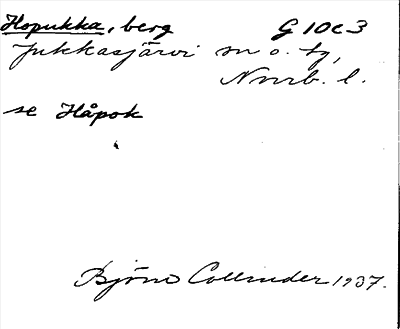 Hopukka, berg G 10c3
Jukkasjärvi sn o. tg,
Nmrb. l.
se Håpok
Björn Collinder 1937.